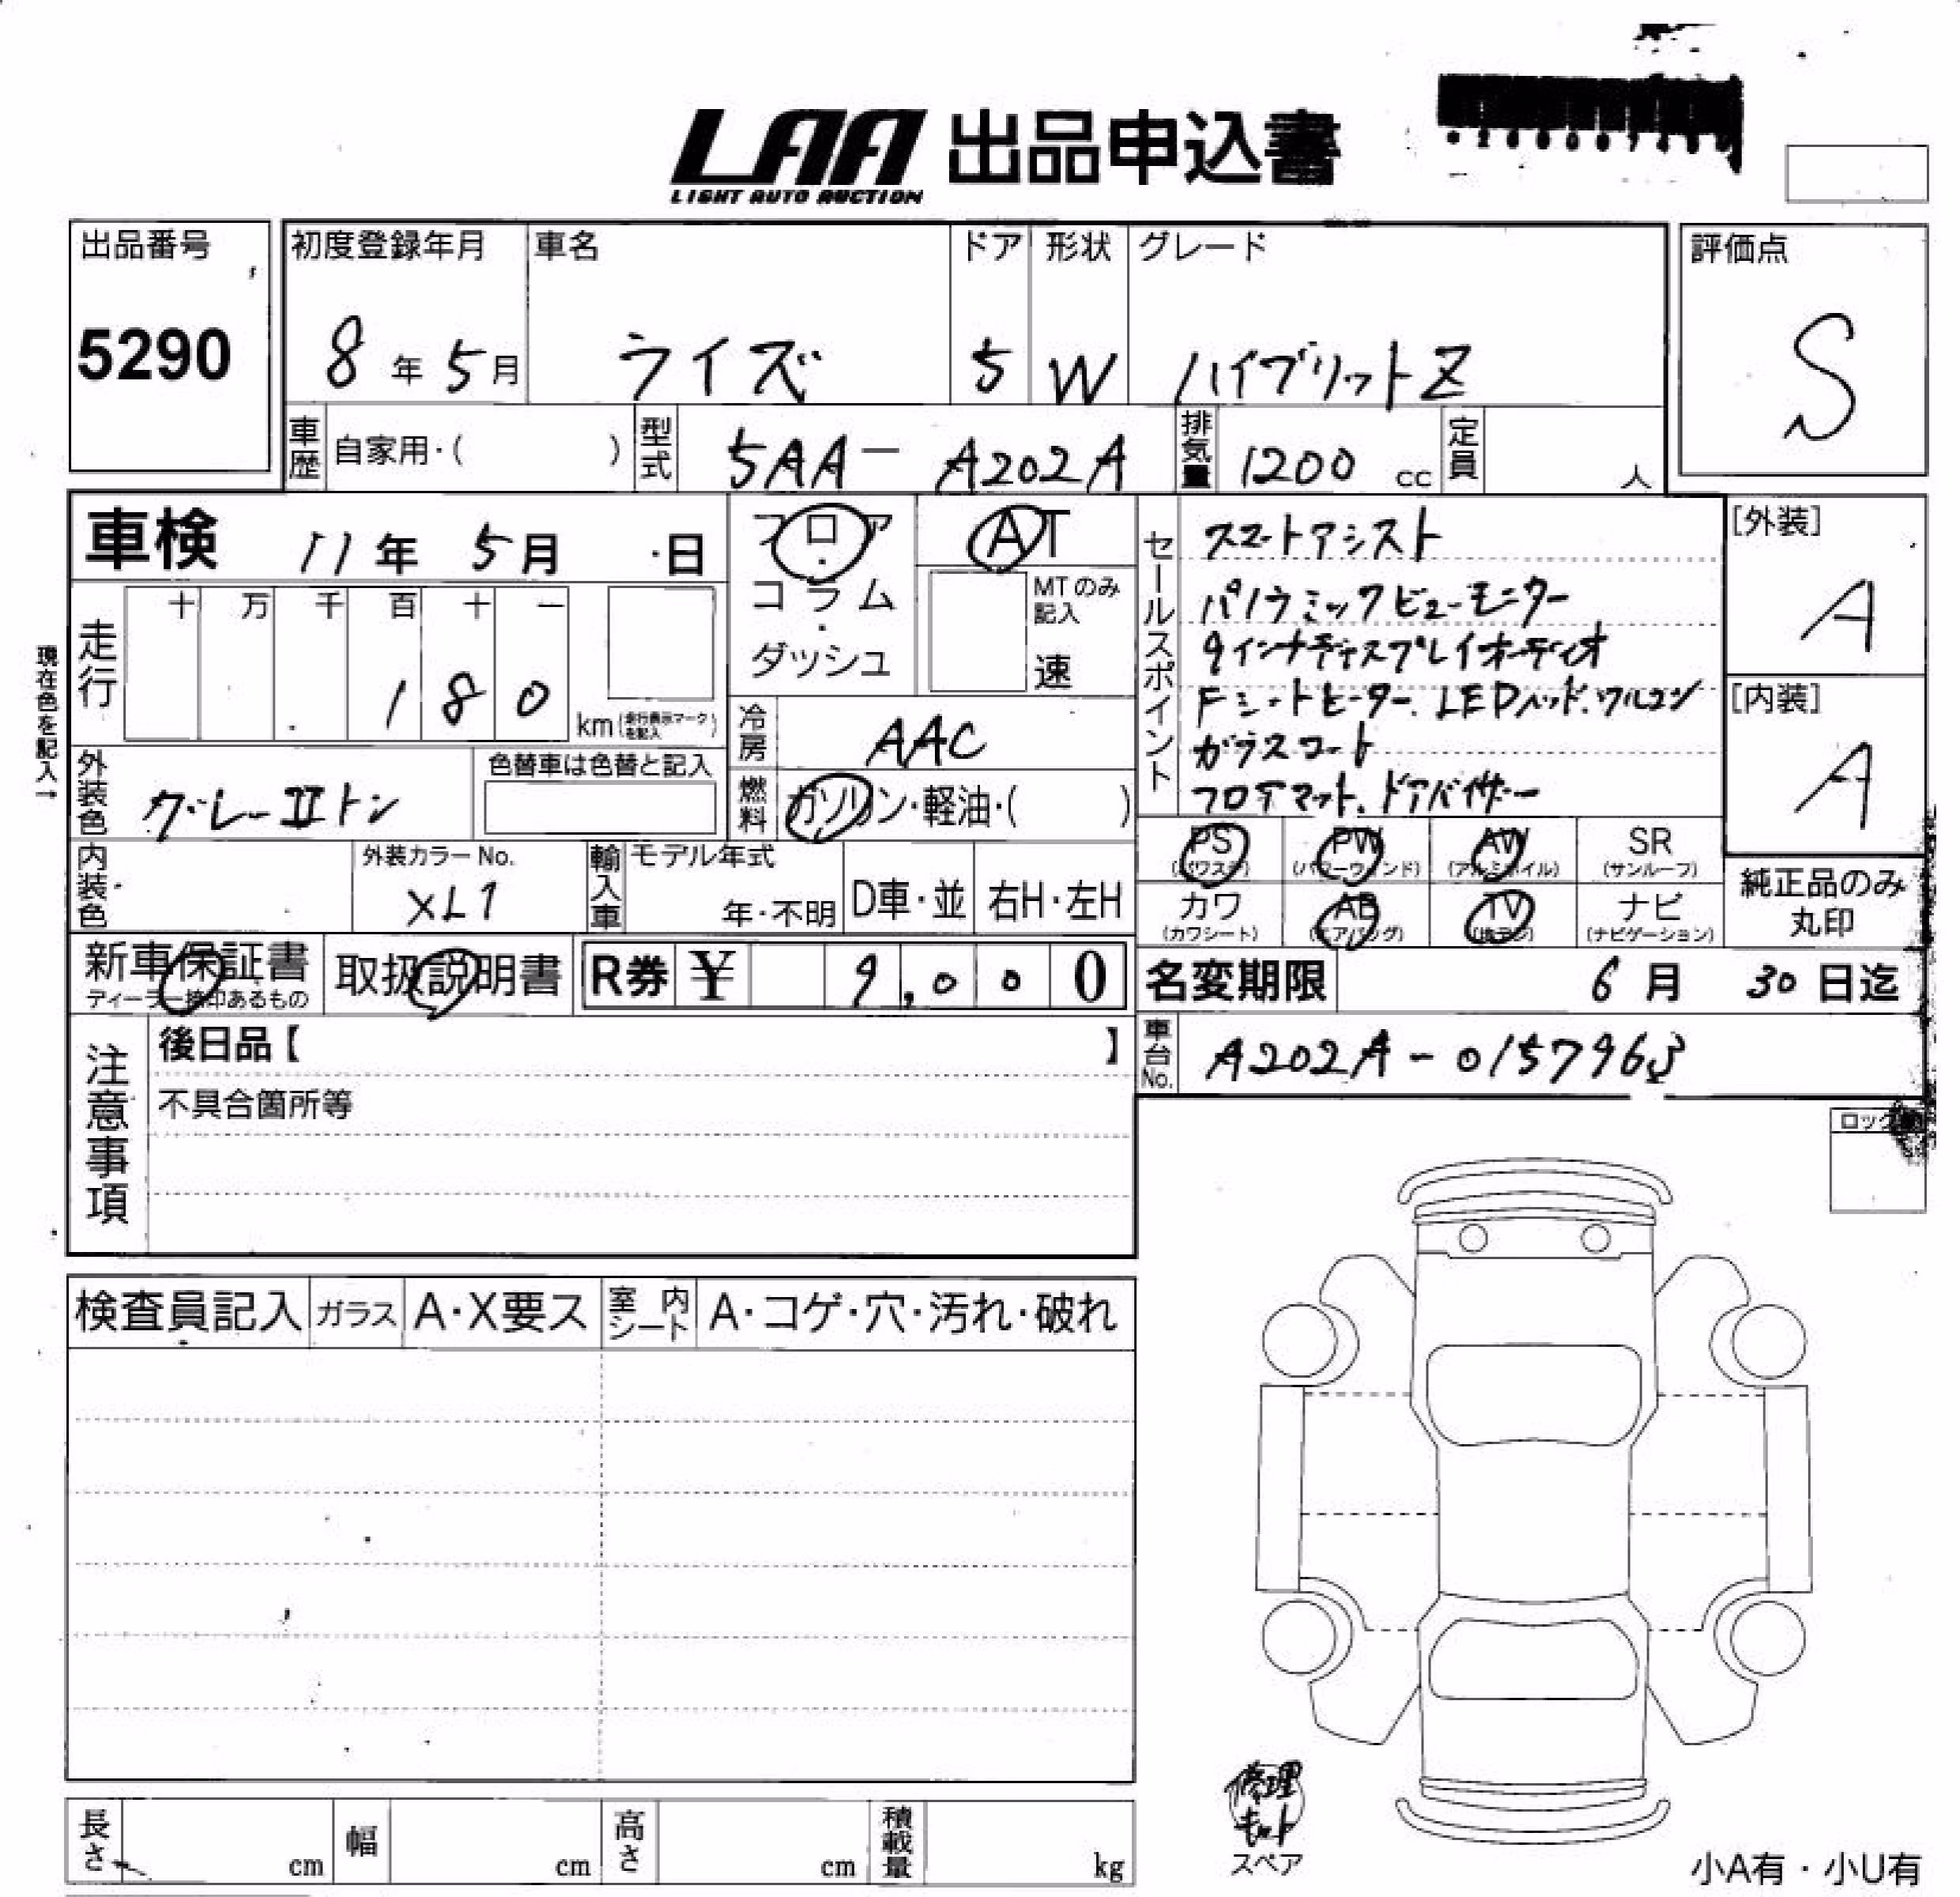 LAA 出品申込書
LIGHT AUTO AUCTION
出品番号
5290
初度登録年月
8年5月
車名
ライズ
ドア
5
形状
W
グレード
ハイブリットZ
評価点
S
車歴 自家用・( )
型式 5AA-A202A
排気量 1200 cc
定員 人
車検 11年5月 日
フロア・コラム・ダッシュ
AT
MTのみ記入
速
セールスポイント
スマートアシスト
パノラミックビューモニター
9インチディスプレイオーディオ
Fシートヒーター.LEDヘッド.ワルコン
ガラスコート
フロアマット.ドアバイザー
[外装]
A
[内装]
A
現在色を記入→
走行
十 万 千 百 十 一
180 km (走行表示マークを記入)
冷房 AAC
外装色 グレーIIトン
色替車は色替と記入
燃料 ガソリン・軽油・( )
内装色
外装カラーNo.
XL1
輸入車
モデル年式
年・不明
D車・並
右H・左H
PS (パワステ)
PW (パワーウィンド)
AW (アルミホイル)
SR (サンルーフ)
カワ (カワシート)
AB (エアバッグ)
TV (地デジ)
ナビ (ナビゲーション)
純正品のみ
丸印
新車保証書
ディーラー捺印あるもの
取扱説明書
R券 ¥ 9,000
名変期限 6月30日迄
車台No. A202A-0157963
注意事項
後日品【 】
不具合箇所等
ロック
検査員記入
ガラス A・X要ス
室内シート A・コゲ・穴・汚れ・破れ
修理
キット
スペア
長さ cm
幅 cm
高さ cm
積載量 kg
小A有・小U有